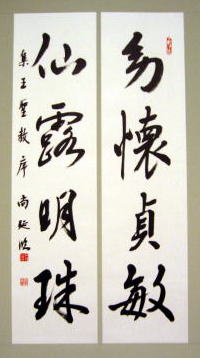 幼懷貞敏
仙露明珠
集王聖教序 尚延